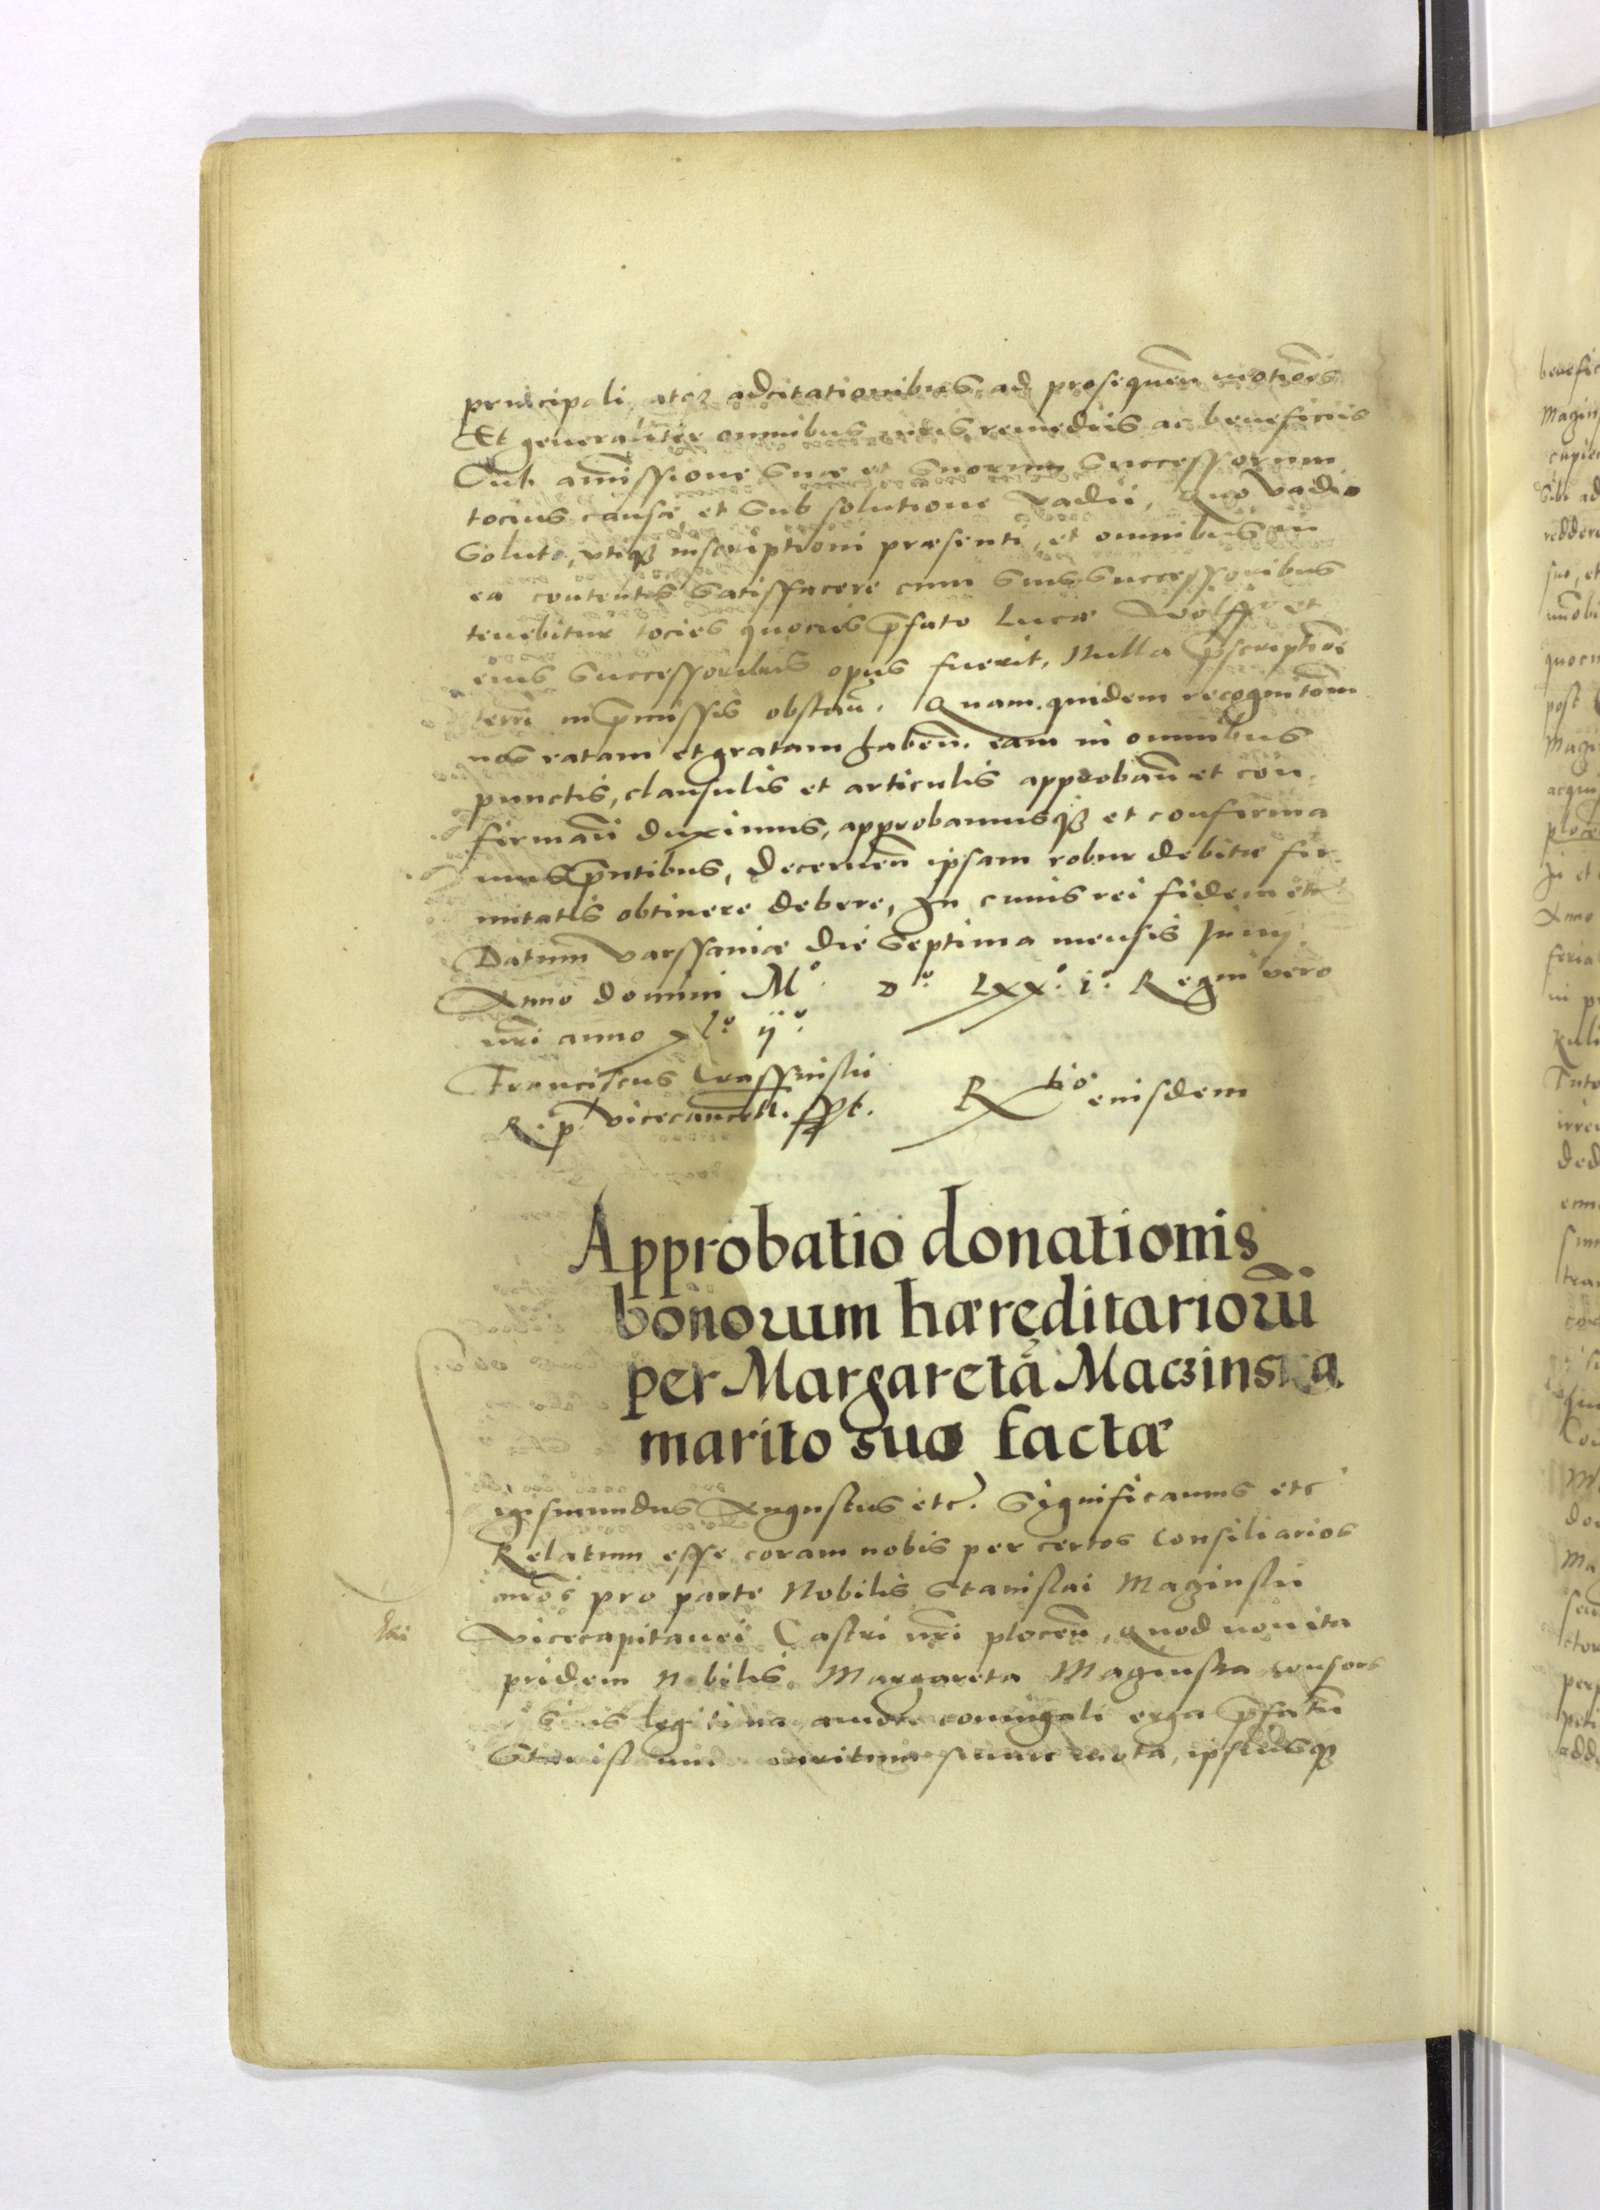 principali, atq3 adcitationibus ad prosequen̄ motiões
Et generaliter omnibus iuris remediis ac beneficiis
Sub amissione suæ et suorum successorum
tocius causæ, et sub solutione vadii, quo vadio
soluto, vtiq3 inscriptioni præsenti, et omnibus in
ea contentis satisfacere cum suis successoribus
tenebitur tocies quocies p̄fato Lucæ Wolff et
eius successoribus opus fuerit, Nulla p̄scriptiõe
terr̃ in p̄missis obstan̄. Quam quidem recognitõm
nos ratam et gratam haben̄. eam in omnibus
punctis, clausulis et articulis approban̄ et con-
firman̄ duximus, approbamusq3 et confirma
mus p̄ntibus, decernen̄ ipsam robur debitæ fir-
mitatis obtinere debere, In cuius rei fidem etc
Datum Varssaviæ die septima mensis Junij.
Anno domini Mº. Dº. Lxx.º Iº. Regni vero
nr̃i anno xlº ijº.
Franciscus Crassinski
R. p. vicecancell. sspt. R̃tio eiusdem
Approbatio donationis
bonorum hæreditarioru̅
per Margaretã Maczinska
marito suo factæ
igismundus Augustus etc. Significamus etc
Relatum esse coram nobis per certos Consiliarios
nr̃os pro parte Nobilis Stanislai Maginski
Vicecapitanei Castri nr̃i plocen̄, Quod non ita
pridem Nobilis Margareta Maginska consors
suis legitima, amore coniugali erga p̄fatũ
Stanislaum maritum suum mota, ipsiusq3